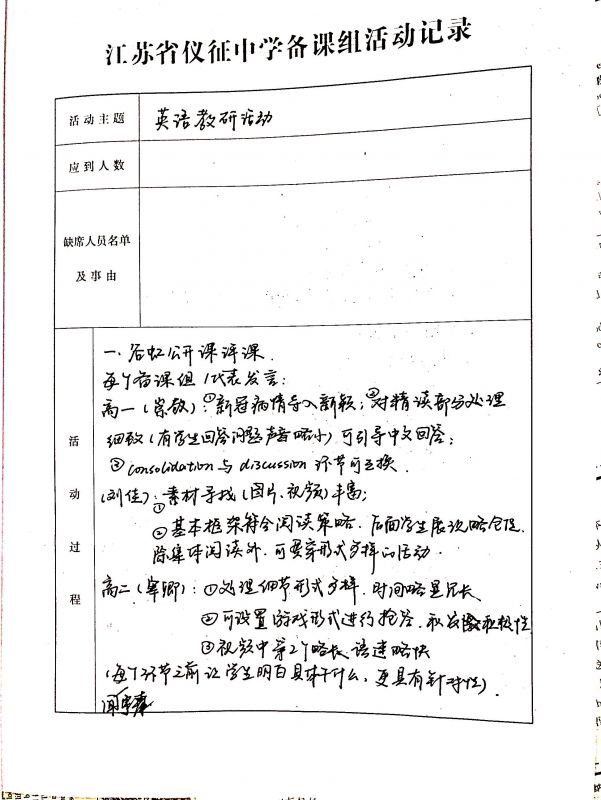 江苏省仪征中学备课组活动记录
活动主题 英语教研活动
应到人数
缺席人员名单
及事由
活动过程
一、谷虹公开课评课.
每个备课组1代表发言:
高一(崇敏):①新冠病情导入新颖;②对精读部分处理
细致(有学生回答问题声音略小)可引导中文回答;
③consolidation与discussion环节可互换.
(刘佳):①素材寻找(图片、视频)丰富;
②基本框架符合阅读策略.后面学生展示略仓促.
除集体阅读外,可要穿形式多样的活动.
高二(寒卿):①处理细节形式多样,时间略显冗长
②可设置游戏形式进行抢答,积极性
③视频中第2个略长 语速略快
(每个环节之前让学生明白具体干什么,更具有针对性).